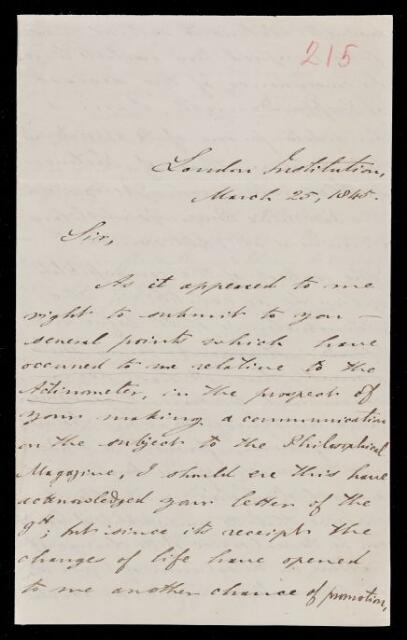 215
London Institution,
March 25, 1845.
Sir,
As it appeared to me
right to submit to you —
several points which have
occurred to me relative to the
Actinometer, in the prospect of
your making a communication
on the subject to the Philosophical
Magazine, I should ere this have
acknowledged your letter of the
9th; but since its receipt the
changes of life have opened
to me another chance of promotion,